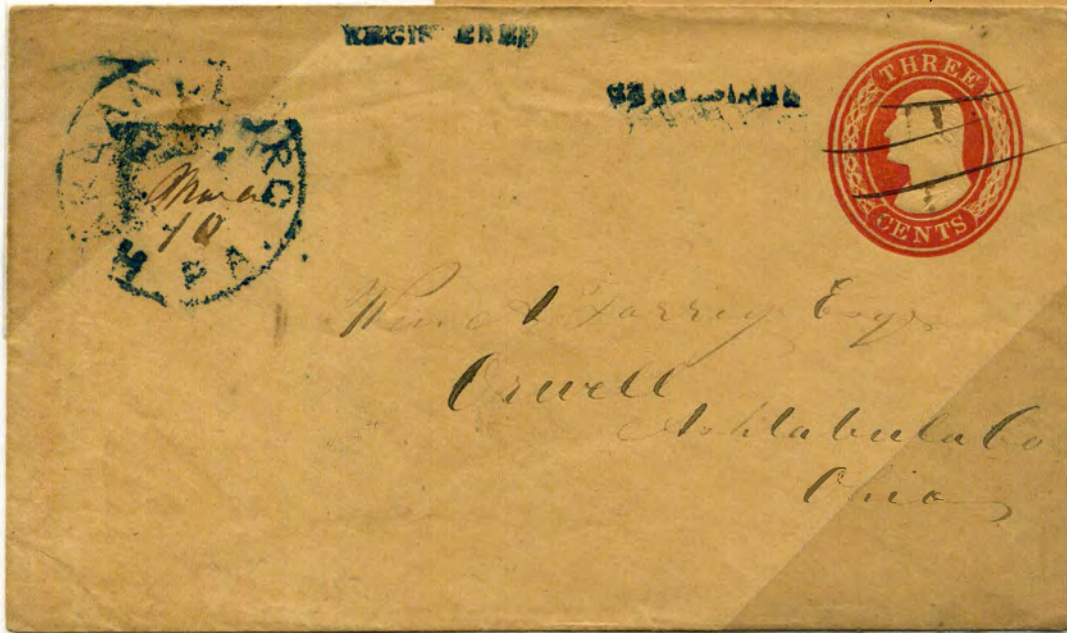 REGISTERED
THREE
CENTS
PA
10
Wm A Esqr
Orwell
Ashtabula Co
Ohio